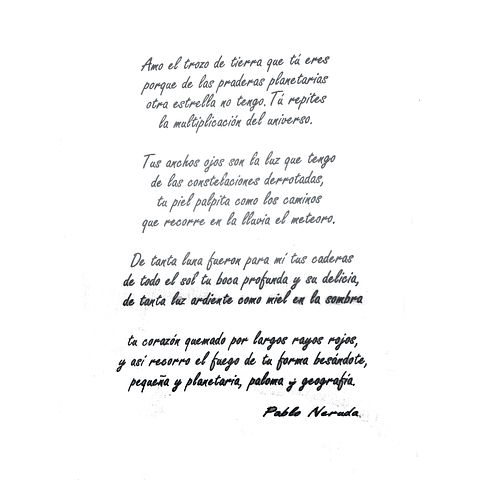 Amo el trozo de tierra que tú eres
porque de las praderas planetarias
otra estrella no tengo. Tú repites
la multiplicación del universo.
Tus anchos ojos son la luz que tengo
de las constelaciones derrotadas,
tu piel palpita como los caminos
que recorre en la lluvia el meteoro.
De tanta luna fueron para mí tus caderas
de todo el sol tu boca profunda y su delicia,
de tanta luz ardiente como miel en la sombra
tu corazón quemado por largos rayos rojos,
y así recorro el fuego de tu forma besándote,
pequeña y planetaria, paloma y geografía.
Pablo Neruda